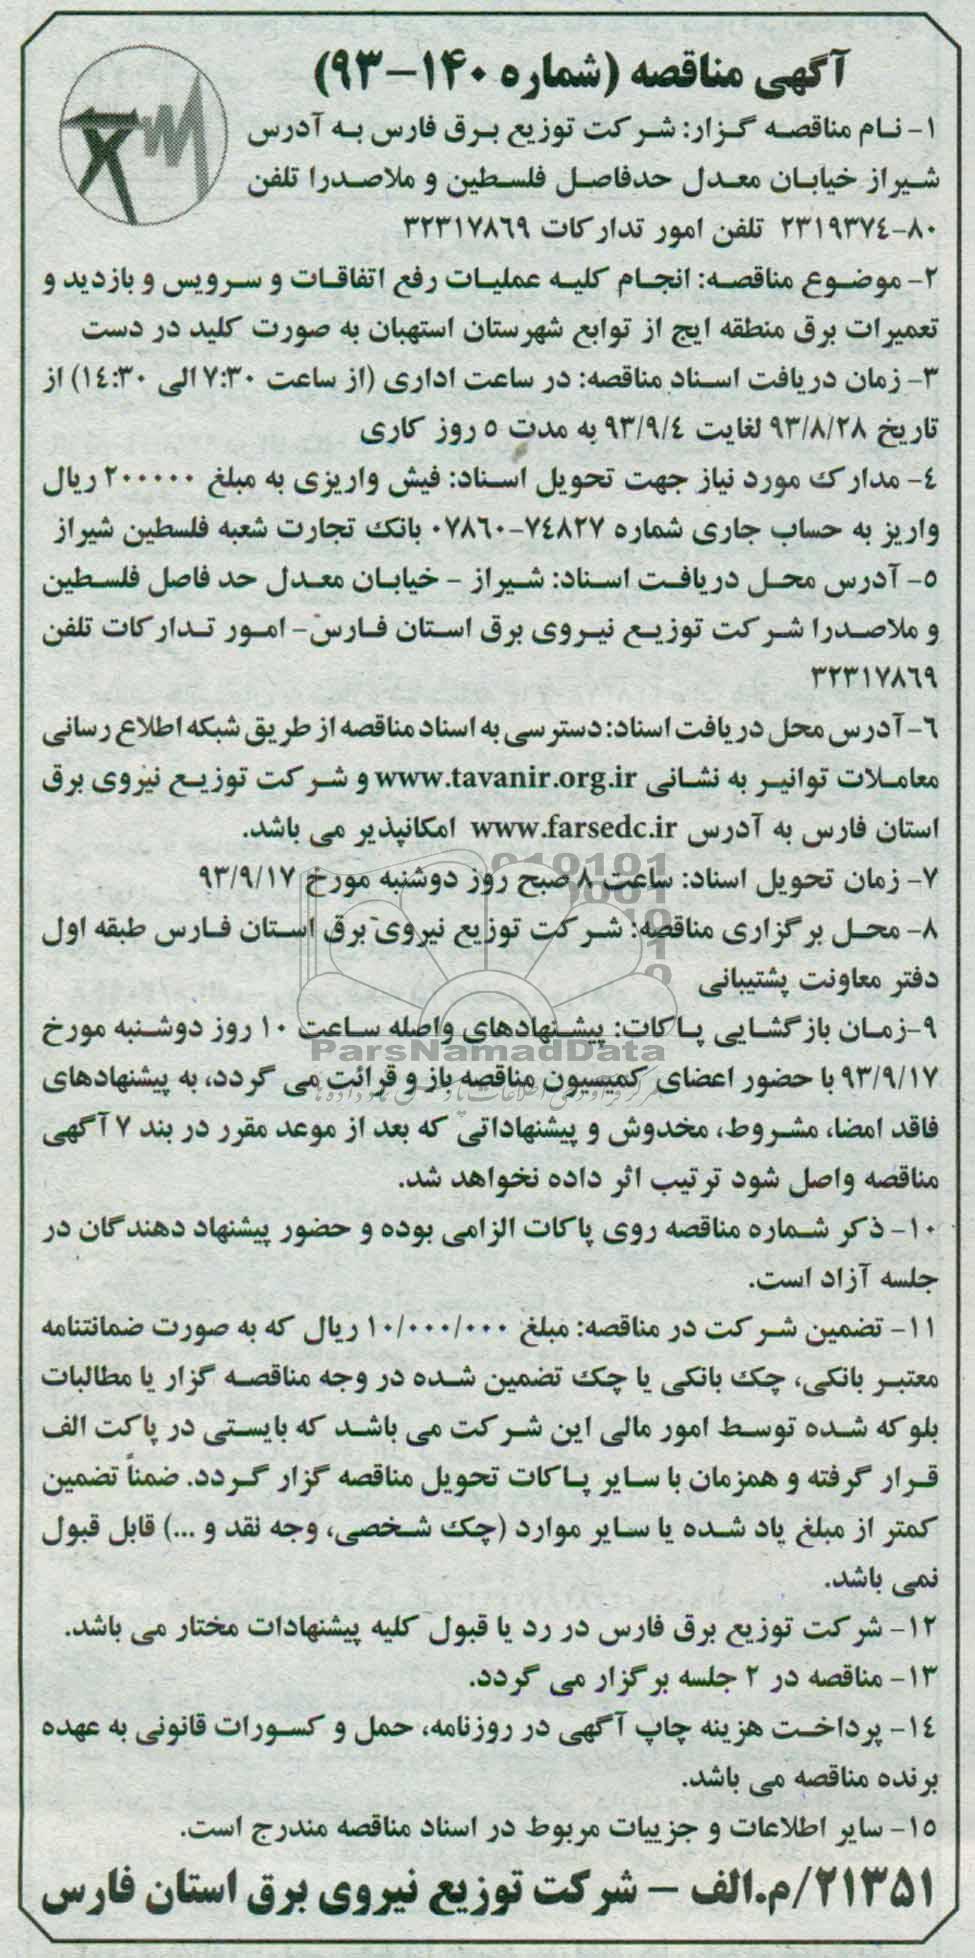 آگهی مناقصه (شماره ۱۴۰-۹۳)
۱- نام مناقصه گزار: شرکت توزیع برق فارس به آدرس
شیراز خیابان معدل حدفاصل فلسطین و ملاصدرا تلفن
۸۰-۲۳۱۹۳۷٤ تلفن امور تدارکات ۳۲۳۱۷۸٦۹
۲- موضوع مناقصه: انجام کلیه عملیات رفع اتفاقات و سرویس و بازدید و
تعمیرات برق منطقه ایج از توابع شهرستان استهبان به صورت کلید در دست
۳- زمان دریافت اسناد مناقصه: در ساعت اداری (از ساعت ۷:۳۰ الی ۱٤:۳۰) از
تاریخ ۹۳/۸/۲۸ لغایت ۹۳/۹/٤ به مدت ۵ روز کاری
٤- مدارک مورد نیاز جهت تحویل اسناد: فیش واریزی به مبلغ ۲۰۰۰۰۰ ریال
واریز به حساب جاری شماره ۷٤۸۲۷-۰۷۸٦۰ بانک تجارت شعبه فلسطین شیراز
۵- آدرس محل دریافت اسناد: شیراز - خیابان معدل حد فاصل فلسطین
و ملاصدرا شرکت توزیع نیروی برق استان فارس- امور تدارکات تلفن
۳۲۳۱۷۸٦۹
٦- آدرس محل دریافت اسناد: دسترسی به اسناد مناقصه از طریق شبکه اطلاع رسانی
معاملات توانیر به نشانی www.tavanir.org.ir و شرکت توزیع نیروی برق
استان فارس به آدرس www.farsedc.ir امکانپذیر می باشد.
۷- زمان تحویل اسناد: ساعت ۸ صبح روز دوشنبه مورخ ۹۳/۹/۱۷
۸- محل برگزاری مناقصه: شرکت توزیع نیروی برق استان فارس طبقه اول
دفتر معاونت پشتیبانی
۹-زمان بازگشایی پاکات: پیشنهادهای واصله ساعت ۱۰ روز دوشنبه مورخ
ParsNamadData
۹۳/۹/۱۷ با حضور اعضای کمیسیون مناقصه باز و قرائت می گردد، به پیشنهادهای
فاقد امضا، مشروط، مخدوش و پیشنهاداتی که بعد از موعد مقرر در بند ۷ آگهی
مناقصه واصل شود ترتیب اثر داده نخواهد شد.
۱۰- ذکر شماره مناقصه روی پاکات الزامی بوده و حضور پیشنهاد دهندگان در
جلسه آزاد است.
۱۱- تضمین شرکت در مناقصه: مبلغ ۱۰/۰۰۰/۰۰۰ ریال که به صورت ضمانتنامه
معتبر بانکی، چک بانکی یا چک تضمین شده در وجه مناقصه گزار یا مطالبات
بلوکه شده توسط امور مالی این شرکت می باشد که بایستی در پاکت الف
قرار گرفته و همزمان با سایر پاکات تحویل مناقصه گزار گردد. ضمناً تضمین
کمتر از مبلغ یاد شده یا سایر موارد (چک شخصی، وجه نقد و ...) قابل قبول
نمی باشد.
۱۲- شرکت توزیع برق فارس در رد یا قبول کلیه پیشنهادات مختار می باشد.
۱۳- مناقصه در ۲ جلسه برگزار می گردد.
۱٤- پرداخت هزینه چاپ آگهی در روزنامه، حمل و کسورات قانونی به عهده
برنده مناقصه می باشد.
۱۵- سایر اطلاعات و جزییات مربوط در اسناد مناقصه مندرج است.
۲۱۳۵۱/م.الف - شرکت توزیع نیروی برق استان فارس